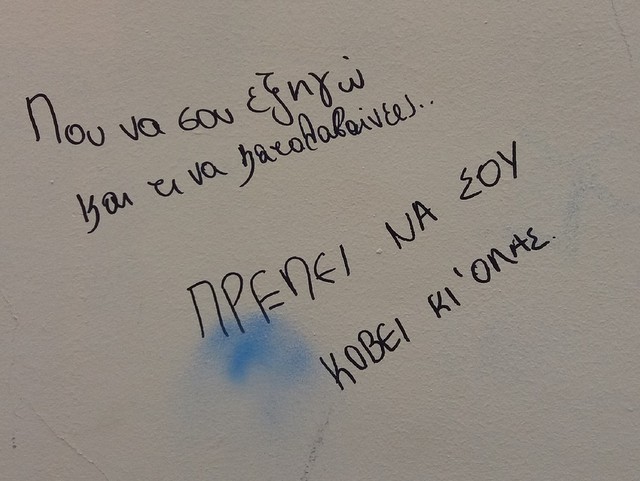 Που να σου εξηγώ
και τι να καταλαβαίνεις..
ΠΡΕΠΕΙ ΝΑ ΣΟΥ
ΚΟΒΕΙ ΚΙ' ΟΛΑΣ.